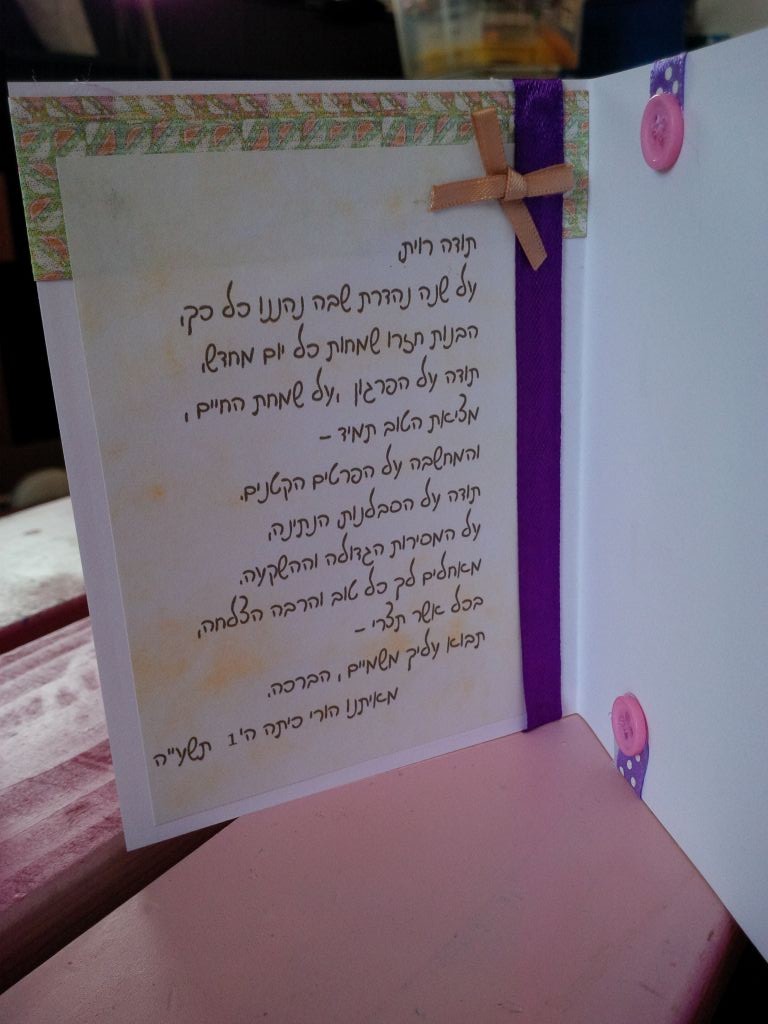 תודה רוית.
על שנה נהדרת שבה נהננו כל כך,
הבנות חזרו שמחות כל יום מחדש,
תודה על הפרגון ,על שמחת החיים ,
מציאת הטוב תמיד –
והמחשבה על הפרטים הקטנים.
תודה על הסבלנות, הנתינה,
על המסירות הגדולה וההשקעה.
מאחלים לך כל טוב והרבה הצלחה,
בכל אשר תצרי –
תבוא עליך משמיים , הברכה.
מאיתנו הורי כיתה ה'1 תשע״ה